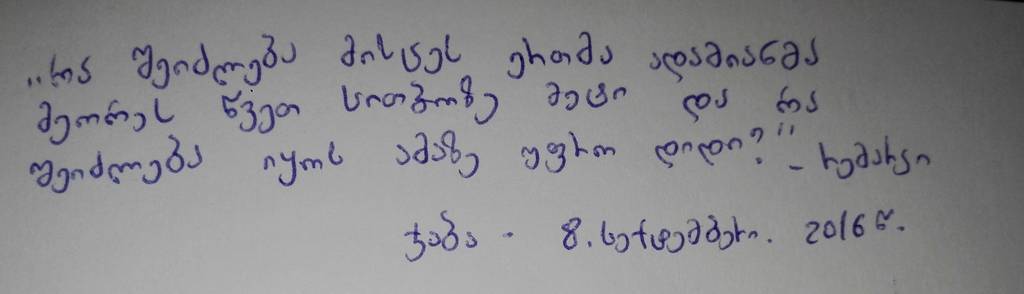 „რა შეიძლება მისცეს ერთმა ადამიანმა
მეორეს წვეთ სითბოზე მეტი და რა
შეიძლება იყოს ამაზე უფრო დიდი?" – რემარკი
ჯაბა - 8. სექტემბერი. 2016 წ.